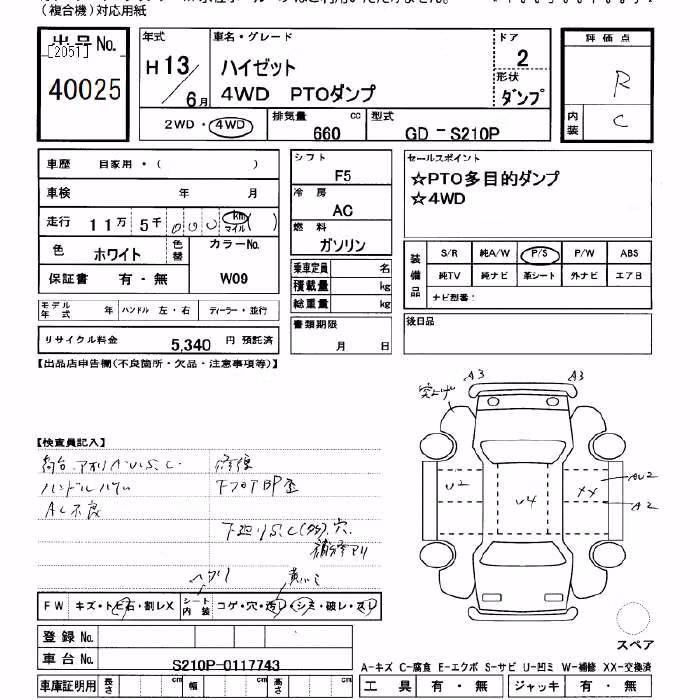 (複合機)対応用紙
出品No.
[2051]
40025
年式
H 13/6月
車名・グレード
ハイゼット
4WD PTOダンプ
ドア
2
形状
ダンプ
2WD・4WD
排気量 cc
660
型式
GD-S210P
評価点
R
内装
C
車歴 自家用・( )
車検 年 月
走行 11万 5千 000 km マイル ( )
色 ホワイト
色替
カラーNo.
W09
保証書 有・無
モデル年式 年
ハンドル 左・右
ディーラー・並行
リサイクル料金 5,340 円 預託済
シフト
F5
冷房
AC
燃料
ガソリン
乗車定員 名
積載量 kg
総重量 kg
書類期限
月 日
セールスポイント
☆PTO多目的ダンプ
☆4WD
装備品
S/R 純A/W P/S P/W ABS
純TV 純ナビ 革シート 外ナビ エアB
ナビ型番:
後日品
【出品店申告欄(不良箇所・欠品・注意事項等)】
【検査員記入】
荷台.アオリA.U.S.C.
AC不良
修復
下廻りS.C(多)穴
補修アリ
突上げ
A3
A3
U2
U4
XX
AU2
A2
FW キズ・トビ石・割レX
シート内装
コゲ・穴・汚レ・シミ・破レ・スレ
登録No.
車台No. S210P-0117743
車庫証明用 長さ cm 幅 cm 高さ cm
スペア
A-キズ C-腐食 E-エクボ S-サビ U-凹ミ W-補修 XX-交換済
工具 有・無 ジャッキ 有・無